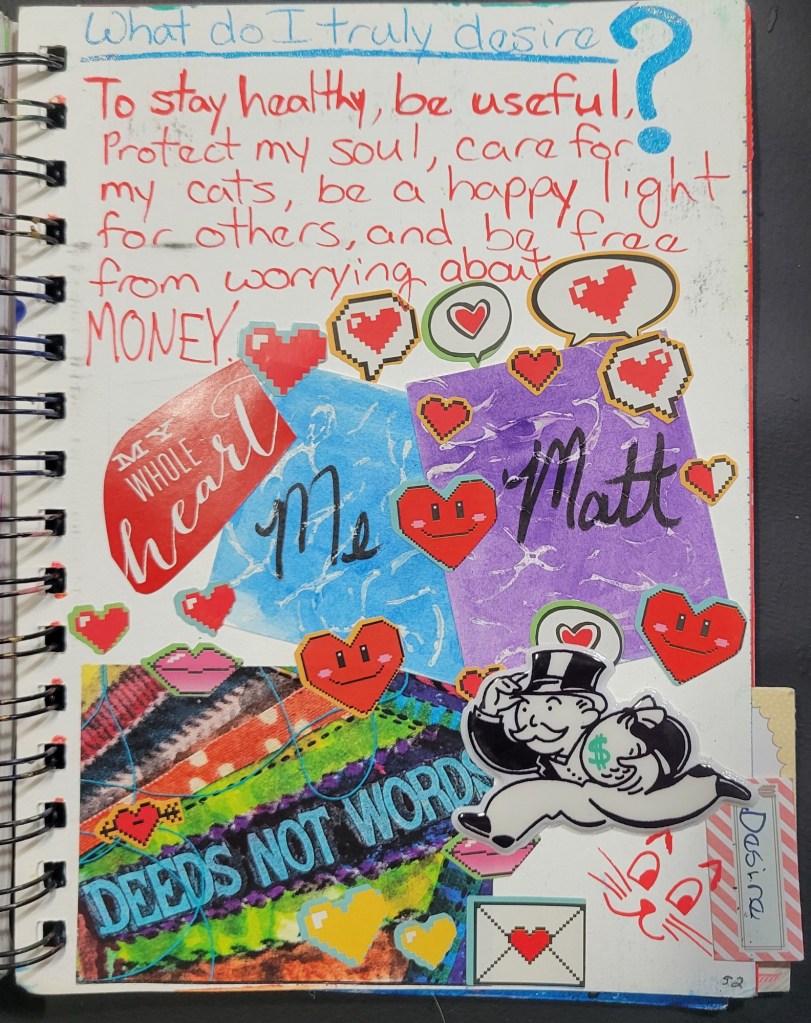 What do I truly desire?
To stay healthy, be useful,
Protect my soul, care for
my cats, be a happy light
for others, and be free
from worrying about
MONEY.
MY
WHOLE
heart
Me
Matt
DEEDS NOT WORDS
$
Desire
52